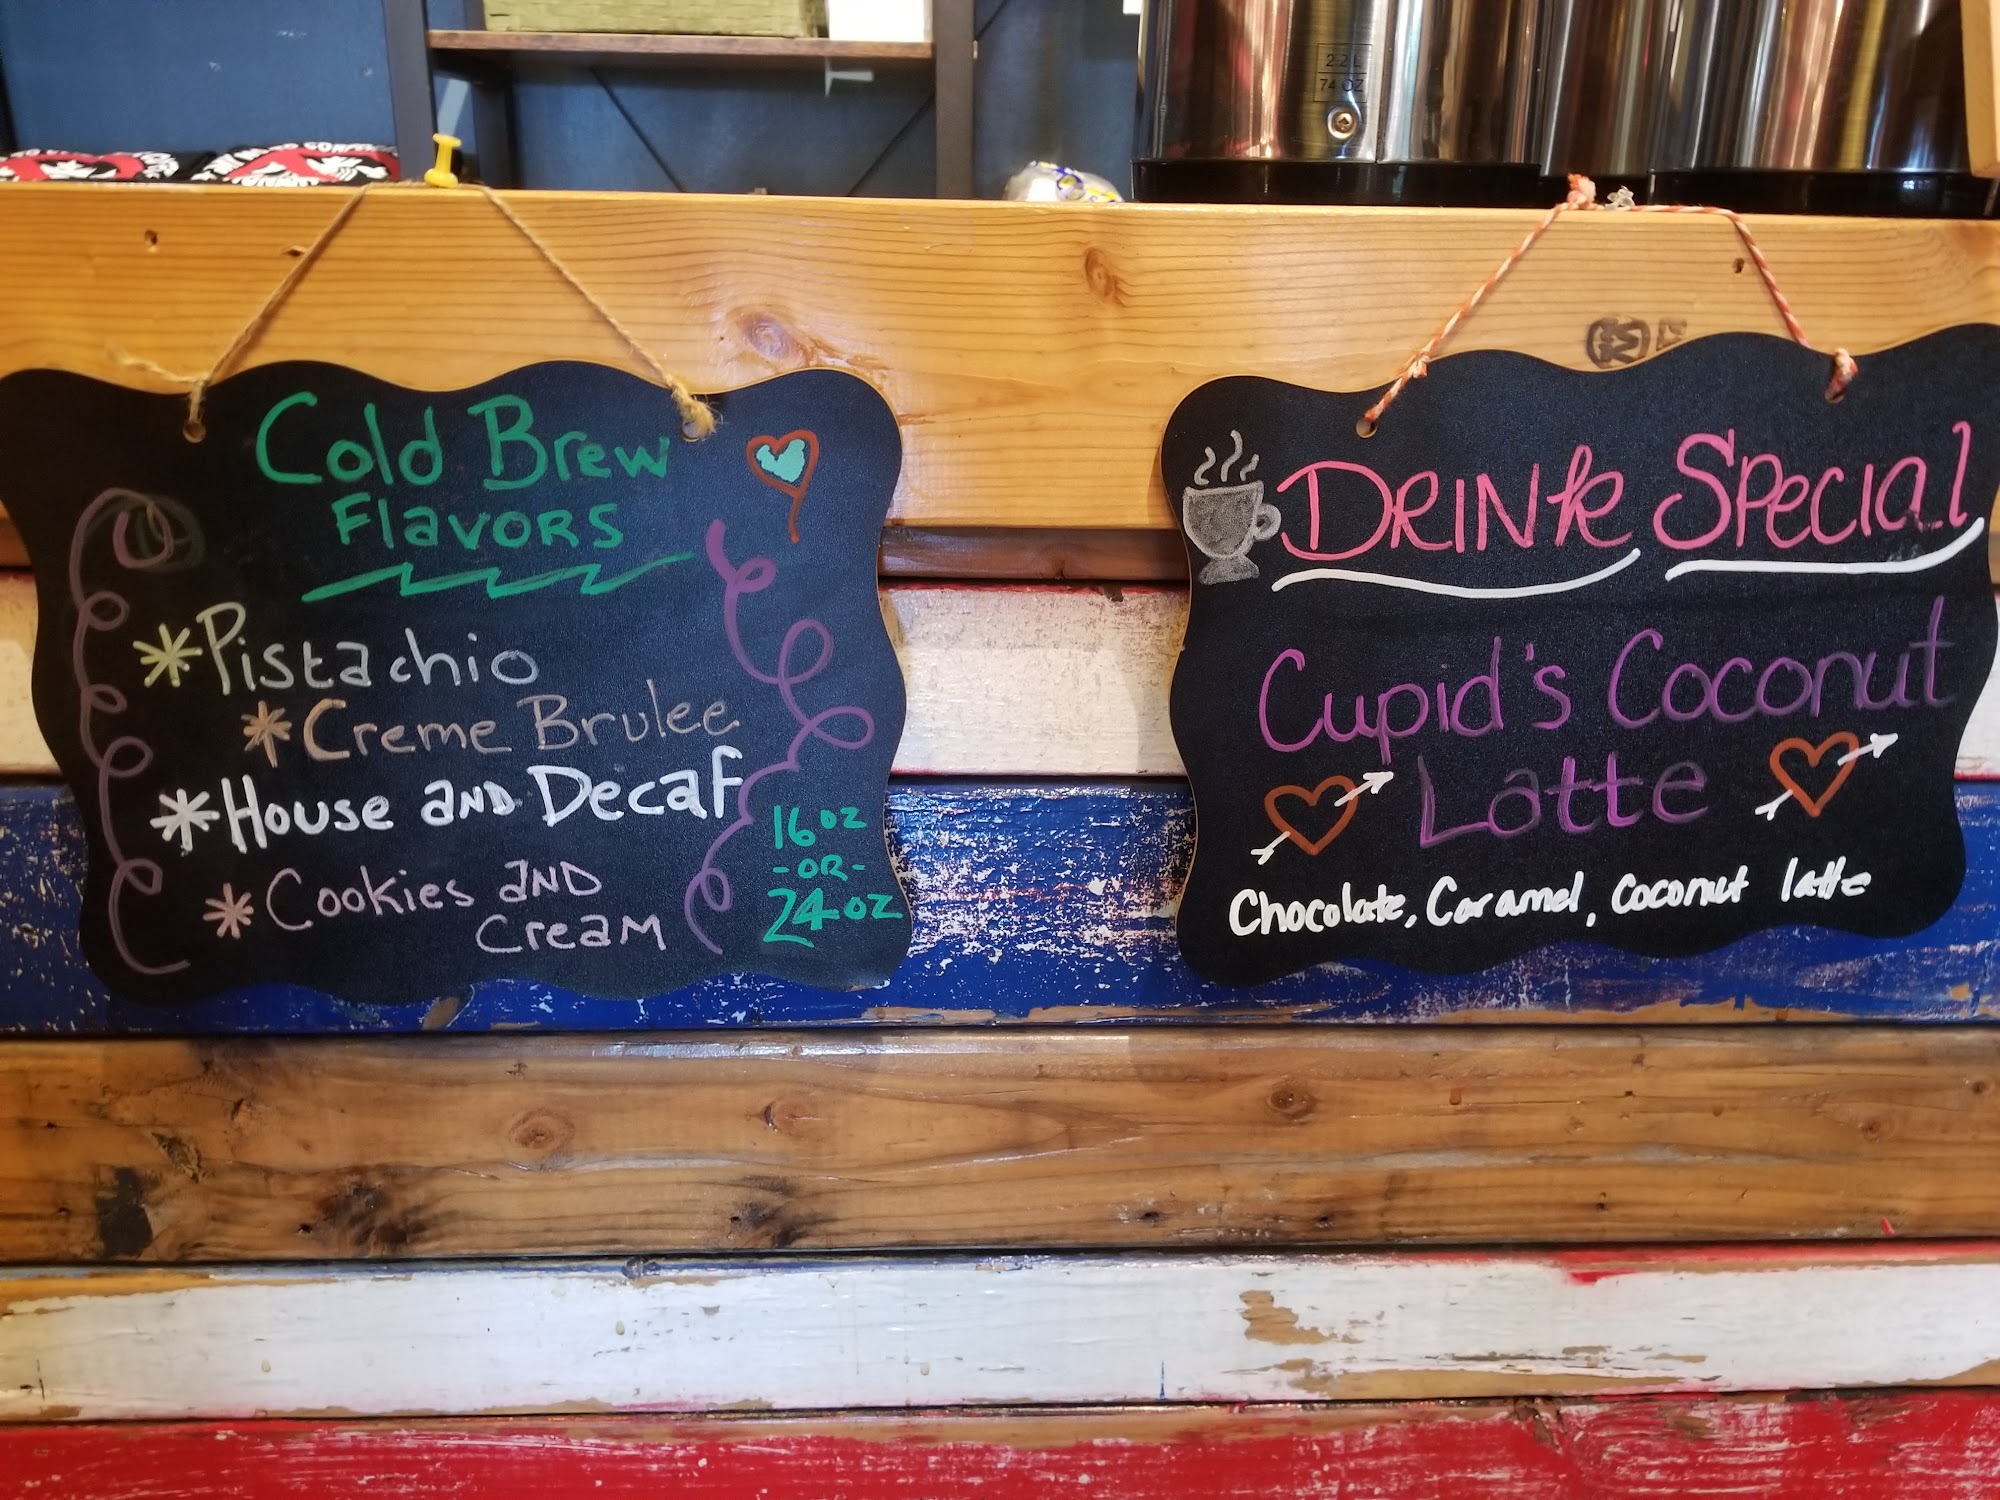 2.2 L
74 OZ
Cold Brew
Flavors
*Pistachio
*Creme Brulee
*House and Decaf
*Cookies and
Cream
16oz
-OR-
24oz
Drink Special
Cupid's Coconut
Latte
Chocolate, Caramel, Coconut latte